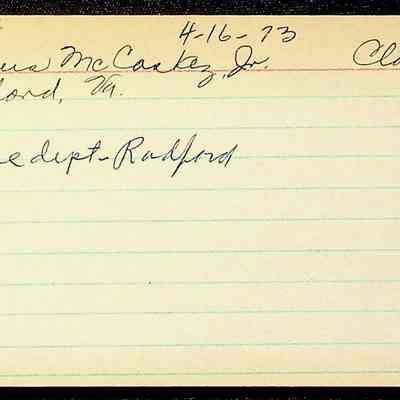 4-16-73
McCoskey, Jr. Cla
ford, Va.
e dept - Radford